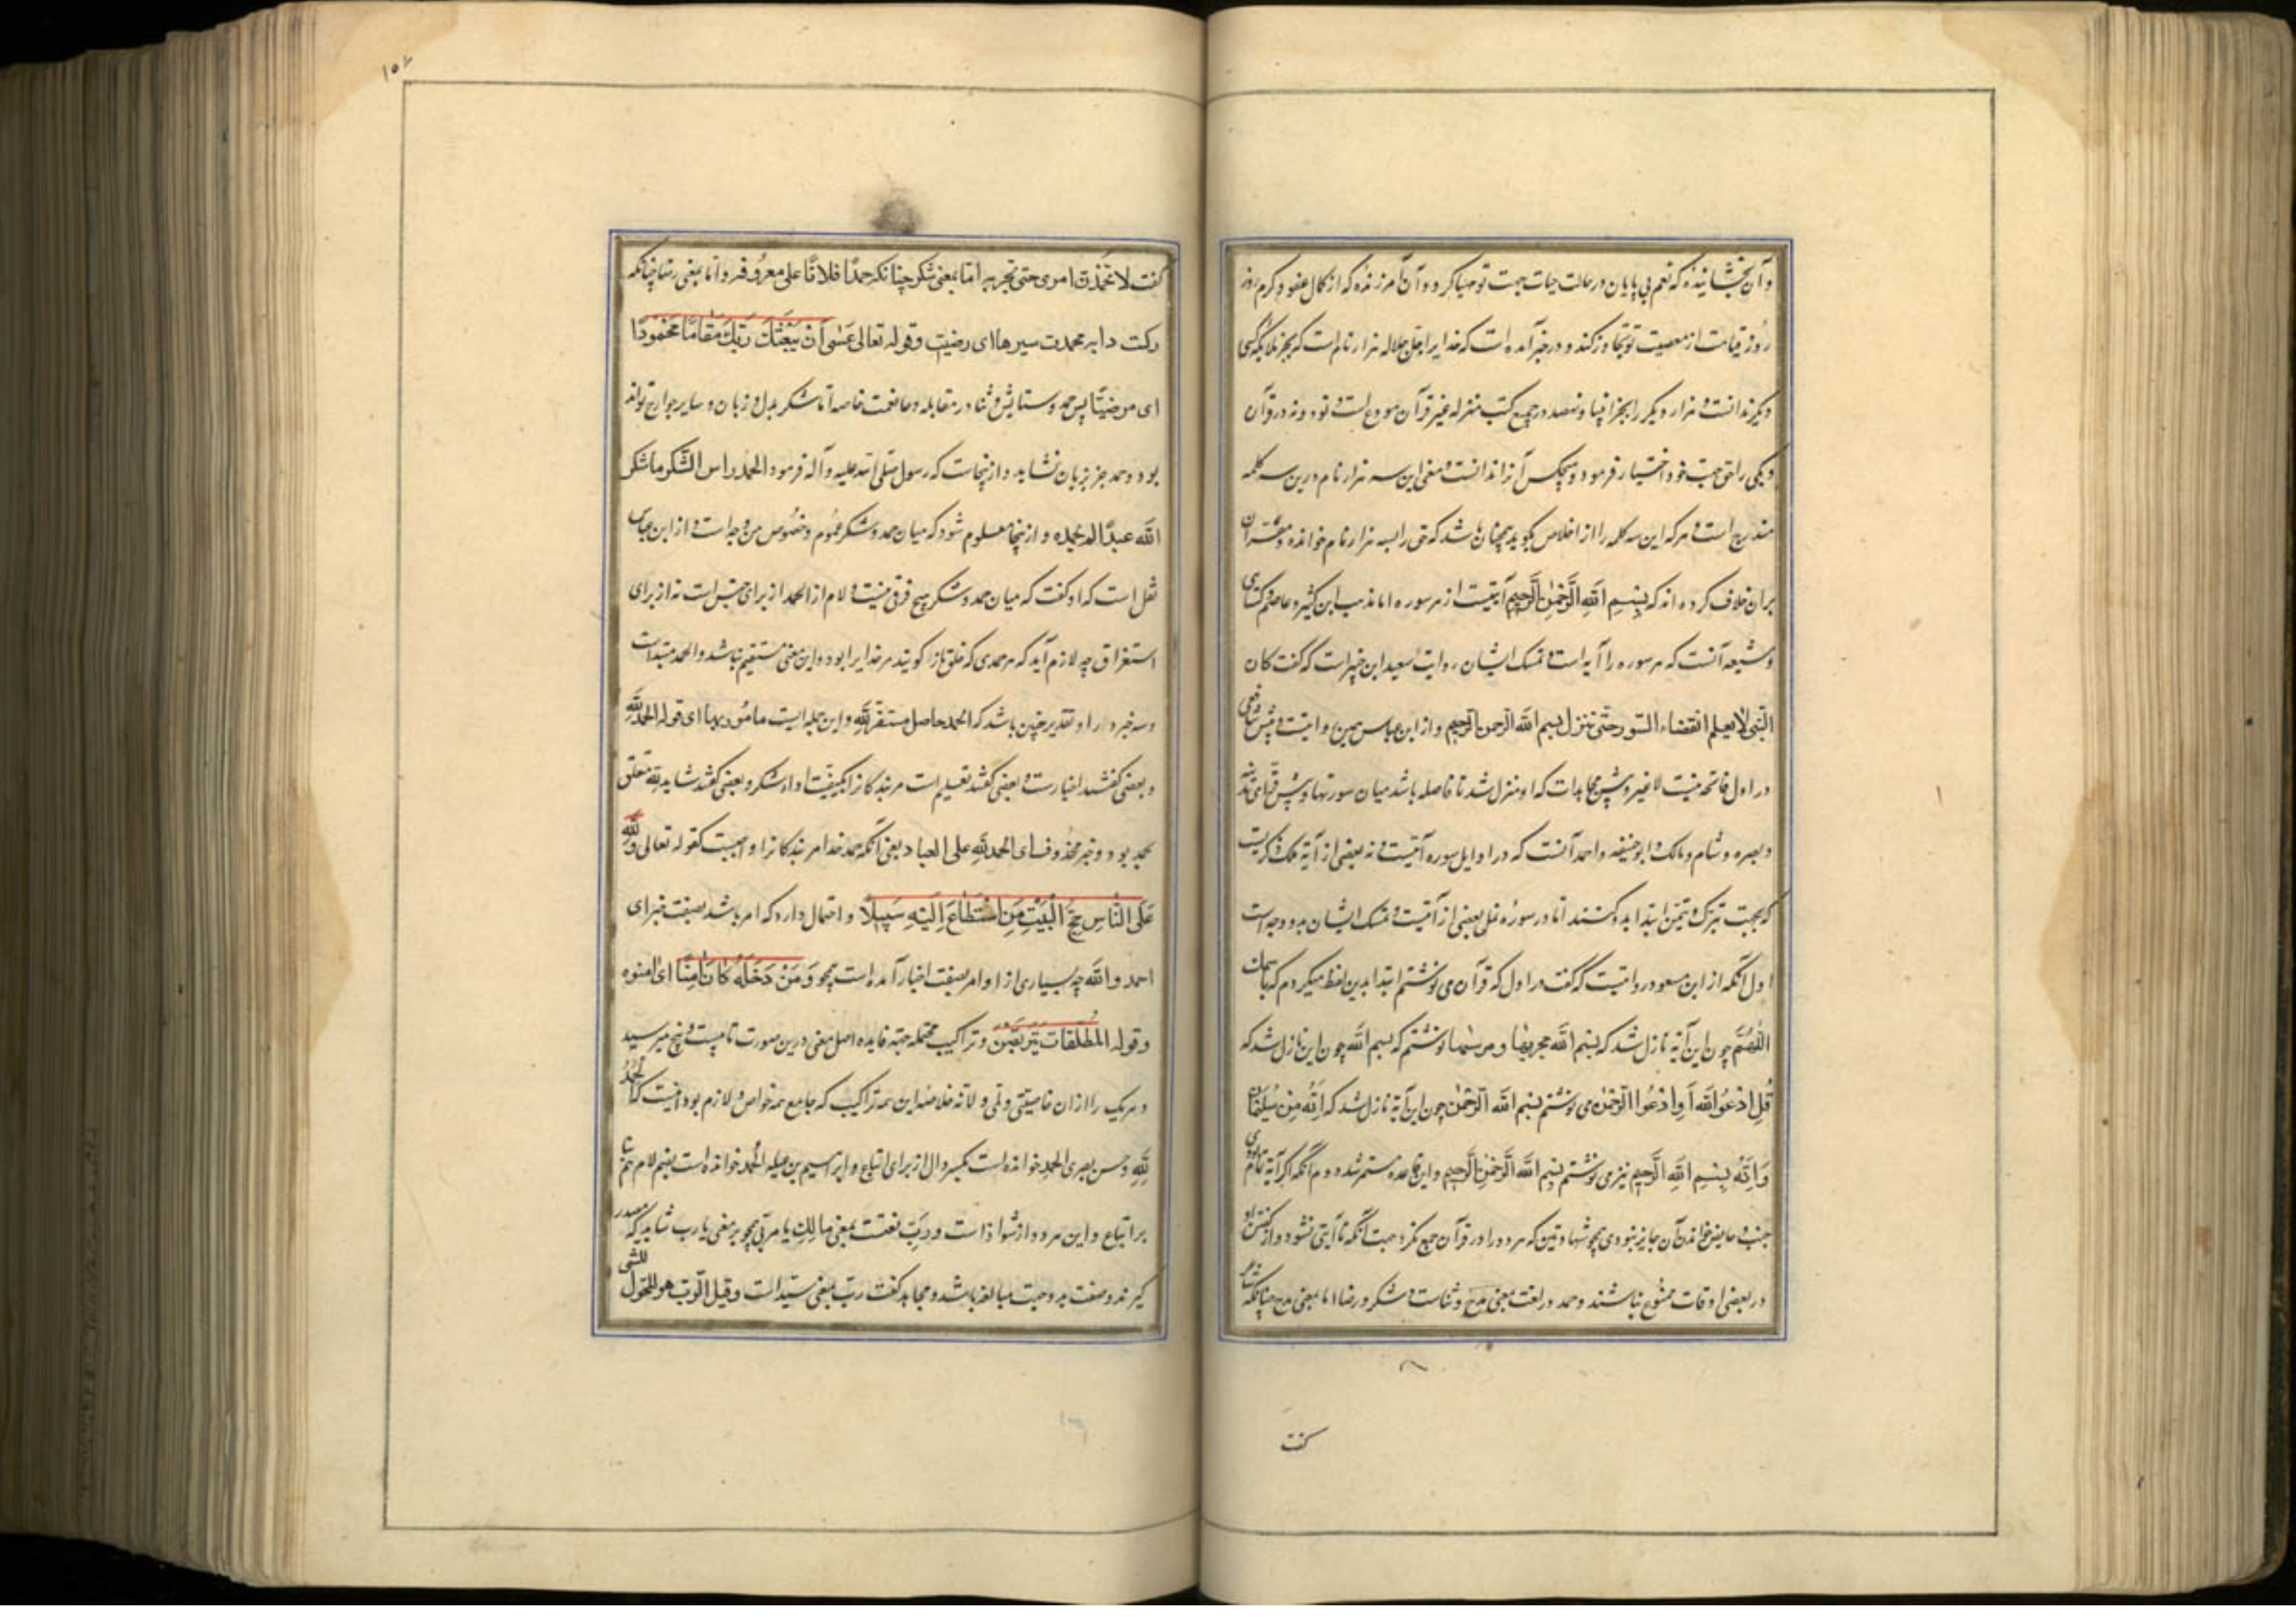 وآن بخشاینده که نعم بی پایان در حالت حیات جهت تو مهیا کرد و آن آمرزنده که از کمال عفو و کرم روز
روز قیامت از معصیت تو تجاوز کند و در خبر آمده است که خدایرا جل جلاله هزار نام است که بجز ملایکه کسی
دیگر ندانست و هزار دیگر را بجز انبیا و نهصد در جمیع کتب منزله غیر قرآن مودع است نود و نه در قرآن
و یکی را حق جهت خود اختیار فرمود و هیچکس آنرا ندانست و معنی این سه هزار نام درین سه کلمه
مندرج است و هر که این سه کلمه را از اخلاص بگوید همچنان باشد که حق را بسه هزار نام خوانده و مفسران
بران خلاف کرده اند که بِسْمِ اللّهِ الرَّحْمٰنِ الرَّحِيمِ آیتیست از هر سوره اما مذهب ابن کثیر و عاصم و کسائی
و شیعه آنست که هر سوره را آیه است و تمسک ایشان روایت سعید ابن جبیر است که گفت کان
النبی لا یعلم انقضاء السور حتی تنزل بسم الله الرحمن الرحیم و از ابن عباس همین روایتست و پیش شافعی
در اول فاتحه نیست لا غیر و پیش مجاهد است که او منزل شد تا فاصله باشد میان سورتها و پیش قرای مدینه
و بصره و شام و مالک و ابوحنیفه و احمد آنست که در اوایل سوره آیتیست و نه بعضی از آیة
که بجهت تبرک و تیمن ابتدا بدو کنند اما در سوره نمل بعضی از آیتست و تمسک ایشان بدو وجه است
اول آنکه از ابن مسعود روایتست که گفت در اول که قرآن می نوشتم ابتدا بدین لفظ میکردم که باسمک
اللّهُمَّ چون این آیه نازل شد که بِسْمِ اللّه مجریها و مرسٰیها نوشتم که بسم اللّه چون این نازل شد که
قُلِ ادْعُوا اللّه اَوِ ادْعُوا الرَّحْمٰن می نوشتم بسم اللّه الرَّحْمٰن چون این آیة نازل شد که اِنَّهُ مِنْ سُلَیْمٰانَ
وَاِنَّهُ بِسْمِ اللّهِ الرَّحِیمِ نیز می نوشتم بِسْمِ اللّه الرَّحْمٰنِ الرَّحِیمِ و این قاعده مستمر شد دوم آنکه اگر آیة تمام بودی
جنب و حایض خواندن آن جایز نبودی همچو شهادتین که هر دو را در قرآن جمع نکرد جهت آنکه تا آیتی نشود و از گفتن او
در بعضی اوقات ممنوع نباشند و حمد در لغت بمعنی مدح و ثناست و شکر و رضا اما بمعنی مدح چنانکه شاعر
گفت
۱۵۲
گفت لا تحمدن امری حتی تجربه اما بمعنی شکر چنانکه حمدًا فلانًا علی معروفه و اما بمعنی رضا چنانکه
رکت دابه محمدت سیرها ای رضیت و قوله تعالی عَسٰی اَنْ یَبْعَثَکَ رَبُّکَ مَقٰامًا مَحْمُودًا
ای مرضیًّا پس حمد و ستایش و ثنا در مقابله نعمت خاصه اما شکر بدل و زبان و سایر جوارح تواند
بود و حمد جز بزبان نشاید و ازینجاست که رسول صلی الله علیه و آله فرمود الحمد راس الشکر ما شکر
اللّه عبدًا لم یحمده و ازینجا معلوم شود که میان حمد و شکر عموم و خصوص من وجه است و از ابن عباس
نقل است که او گفت که میان حمد و شکر هیچ فرق نیست و لام از الحمد از برای جنس است نه از برای
استغراق چه لازم آید که هر حمدی که خلق را گویند مر خدایرا بود و این معنی مستقیم نباشد و الحمد مبتداست
و سه خبر دارد و تقدیر چنین باشد که الحمد حاصل مستقر لله و این جمله ایست مامور بها ای قوله الحمد لله
و بعضی گفتند اخبار است و بعضی گفتند تعلیم است مر بندگانرا بکیفیت اداء شکر و بعضی گفتند شاید لله متعلق
بحمد بود و خبر محذوفست ای الحمد لله علی العباد یعنی آنکه حمد خدا مر بندگانرا واجبست کقوله تعالی وَلِلّهِ
عَلَی النّاسِ حِجُّ الْبَیْتِ مَنِ اسْتَطٰاعَ اِلَیْهِ سَبِیلًا و احتمال دارد که امر باشد بصیغت خبر ای
احمد و الله چه بسیاری از اوامر بصیغت اخبار آمده است همچو وَمَنْ دَخَلَهُ کٰانَ اٰمِنًا ای امنوه
و قوله المُطَلَّقات یَتَرَبَّصْنَ و تراکیب محتمله جهة فایده اصل معنی درین صورت تا بیست و پنج میرسید
و هر یک را از آن خاصیتی و لانه خلاصه این همه تراکیب که جامع همه خواص و لازم بود اینست که الْحَمْدُ
لِلّهِ و حسن بصری الحمدِ خوانده است بکسر دال از برای اتباع و ابراهیم بن عیله الحمدُ خوانده است بضم لام هم بنا
بر اتباع و این هر دو از شواذ است و رَبّ نعتست بمعنی مالک یا مربی همچو بر معنی یا رب شاید که مصدر
گیرند و صفت بدو جهت مبالغه باشد و مجاهد گفت رب بمعنی سیداست و قیل الرب هو المحول للشی